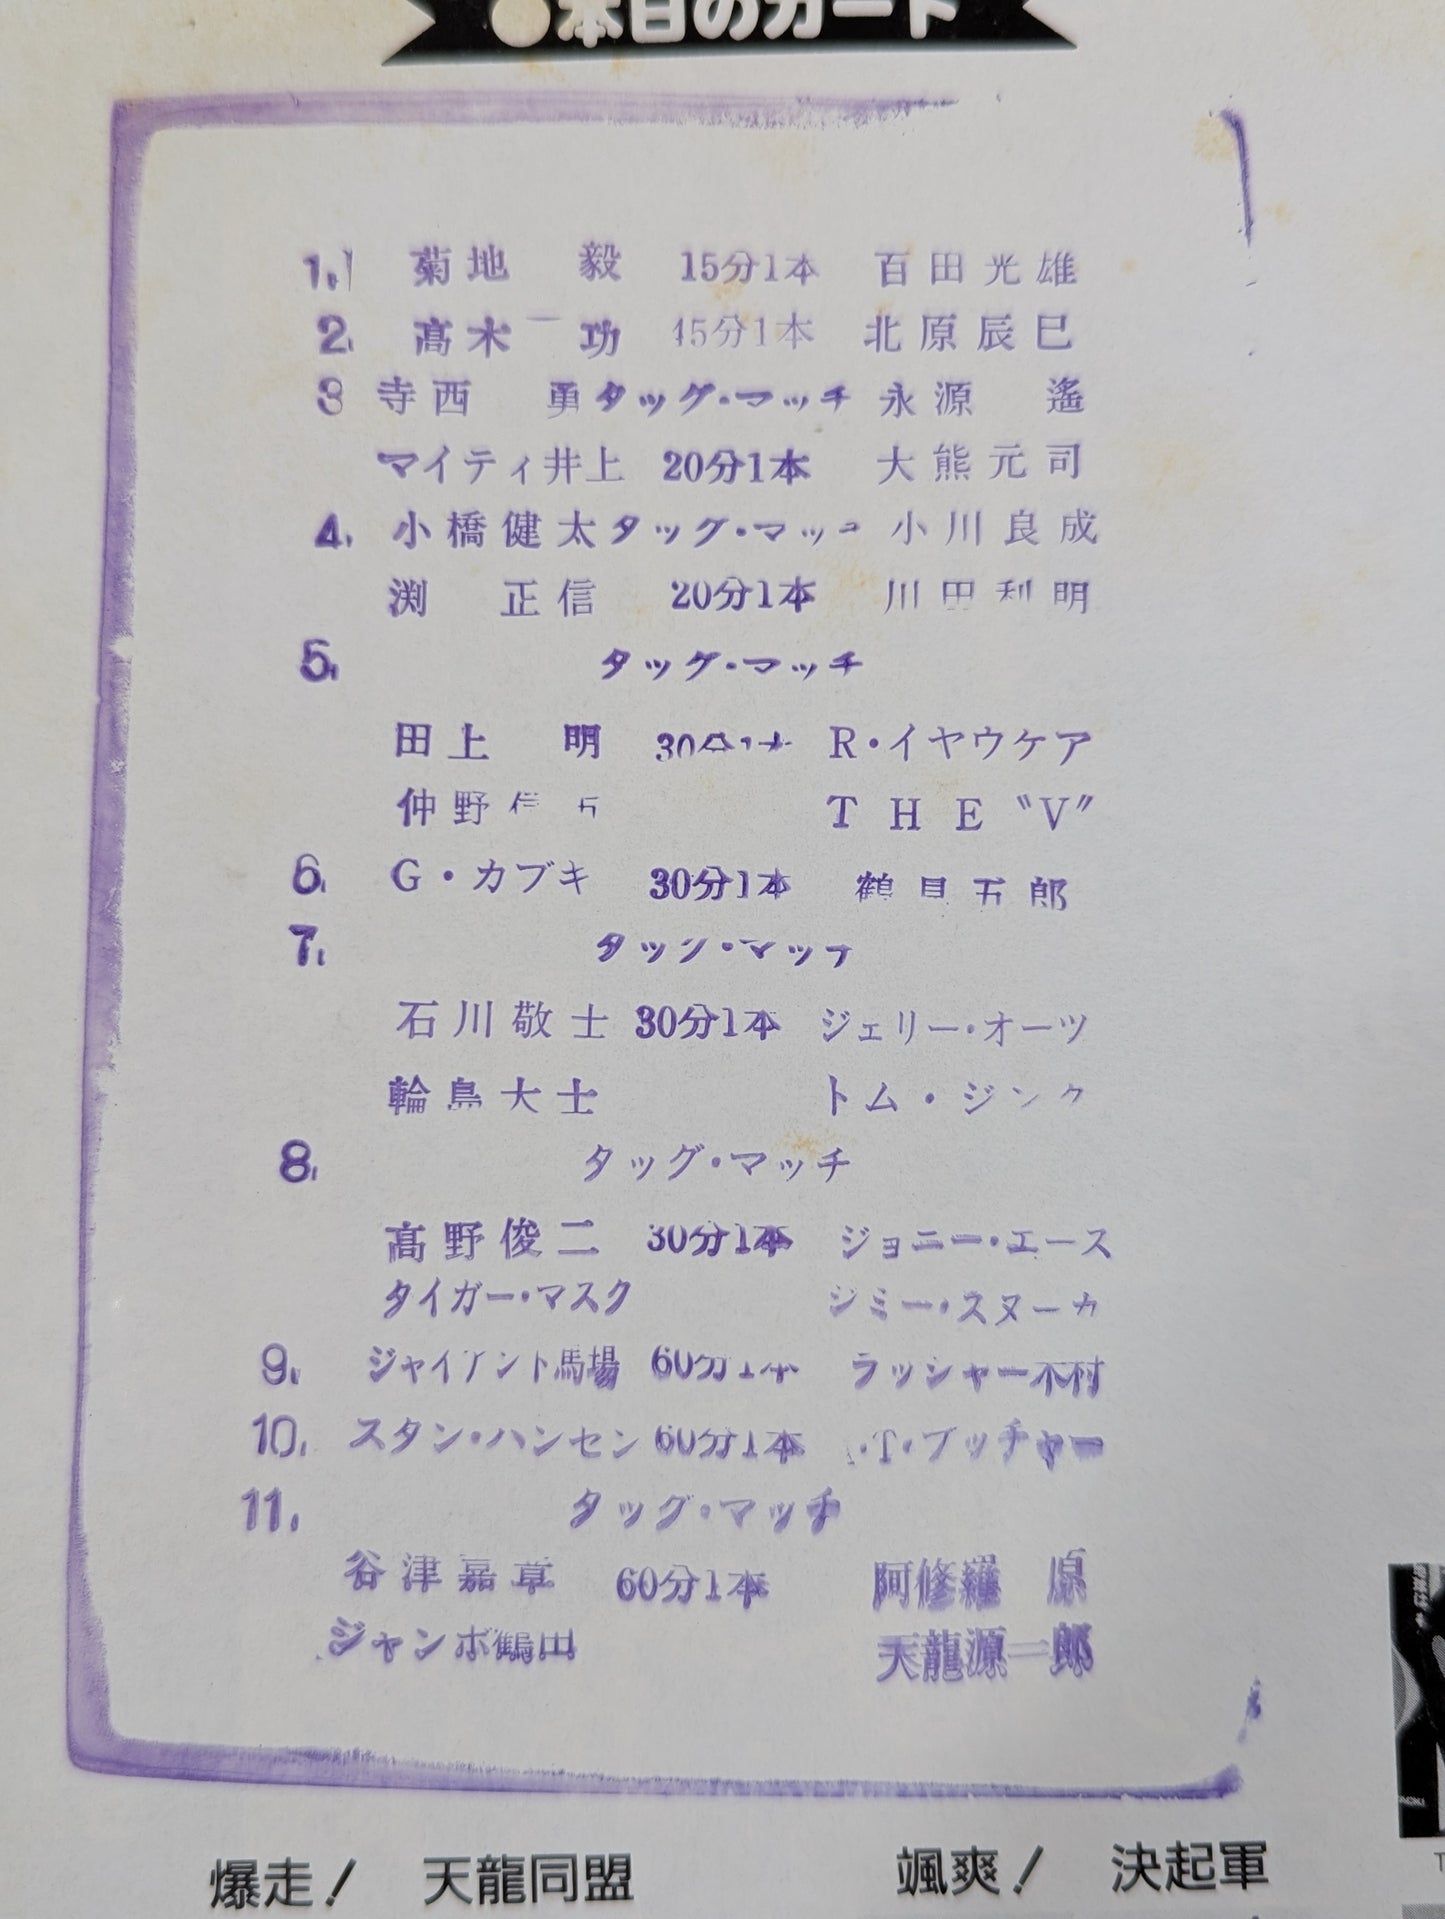 ●本日のカード
1. 菊地 毅 15分1本 百田光雄
2. 高木 功 15分1本 北原辰巳
3 寺西 勇 タッグ・マッチ 永源 遙
マイティ井上 20分1本 大熊元司
4. 小橋健太 タッグ・マッチ 小川良成
渕 正信 20分1本 川田利明
5. タッグ・マッチ
田上 明 30分1本 R・イヤウケア
仲野信市 THE〝V〞
6. G・カブキ 30分1本 鶴見五郎
7. タッグ・マッチ
石川敬士 30分1本 ジェリー・オーツ
輪島大士 トム・ジンク
8. タッグ・マッチ
高野俊二 30分1本 ジョニー・エース
タイガー・マスク ジミー・スヌーカ
9. ジャイアント馬場 60分1本 ラッシャー木村
10. スタン・ハンセン 60分1本 ・T・ブッチャー
11. タッグ・マッチ
谷津嘉章 60分1本 阿修羅 原
ジャンボ鶴田 天龍源一郎
爆走! 天龍同盟 颯爽! 決起軍